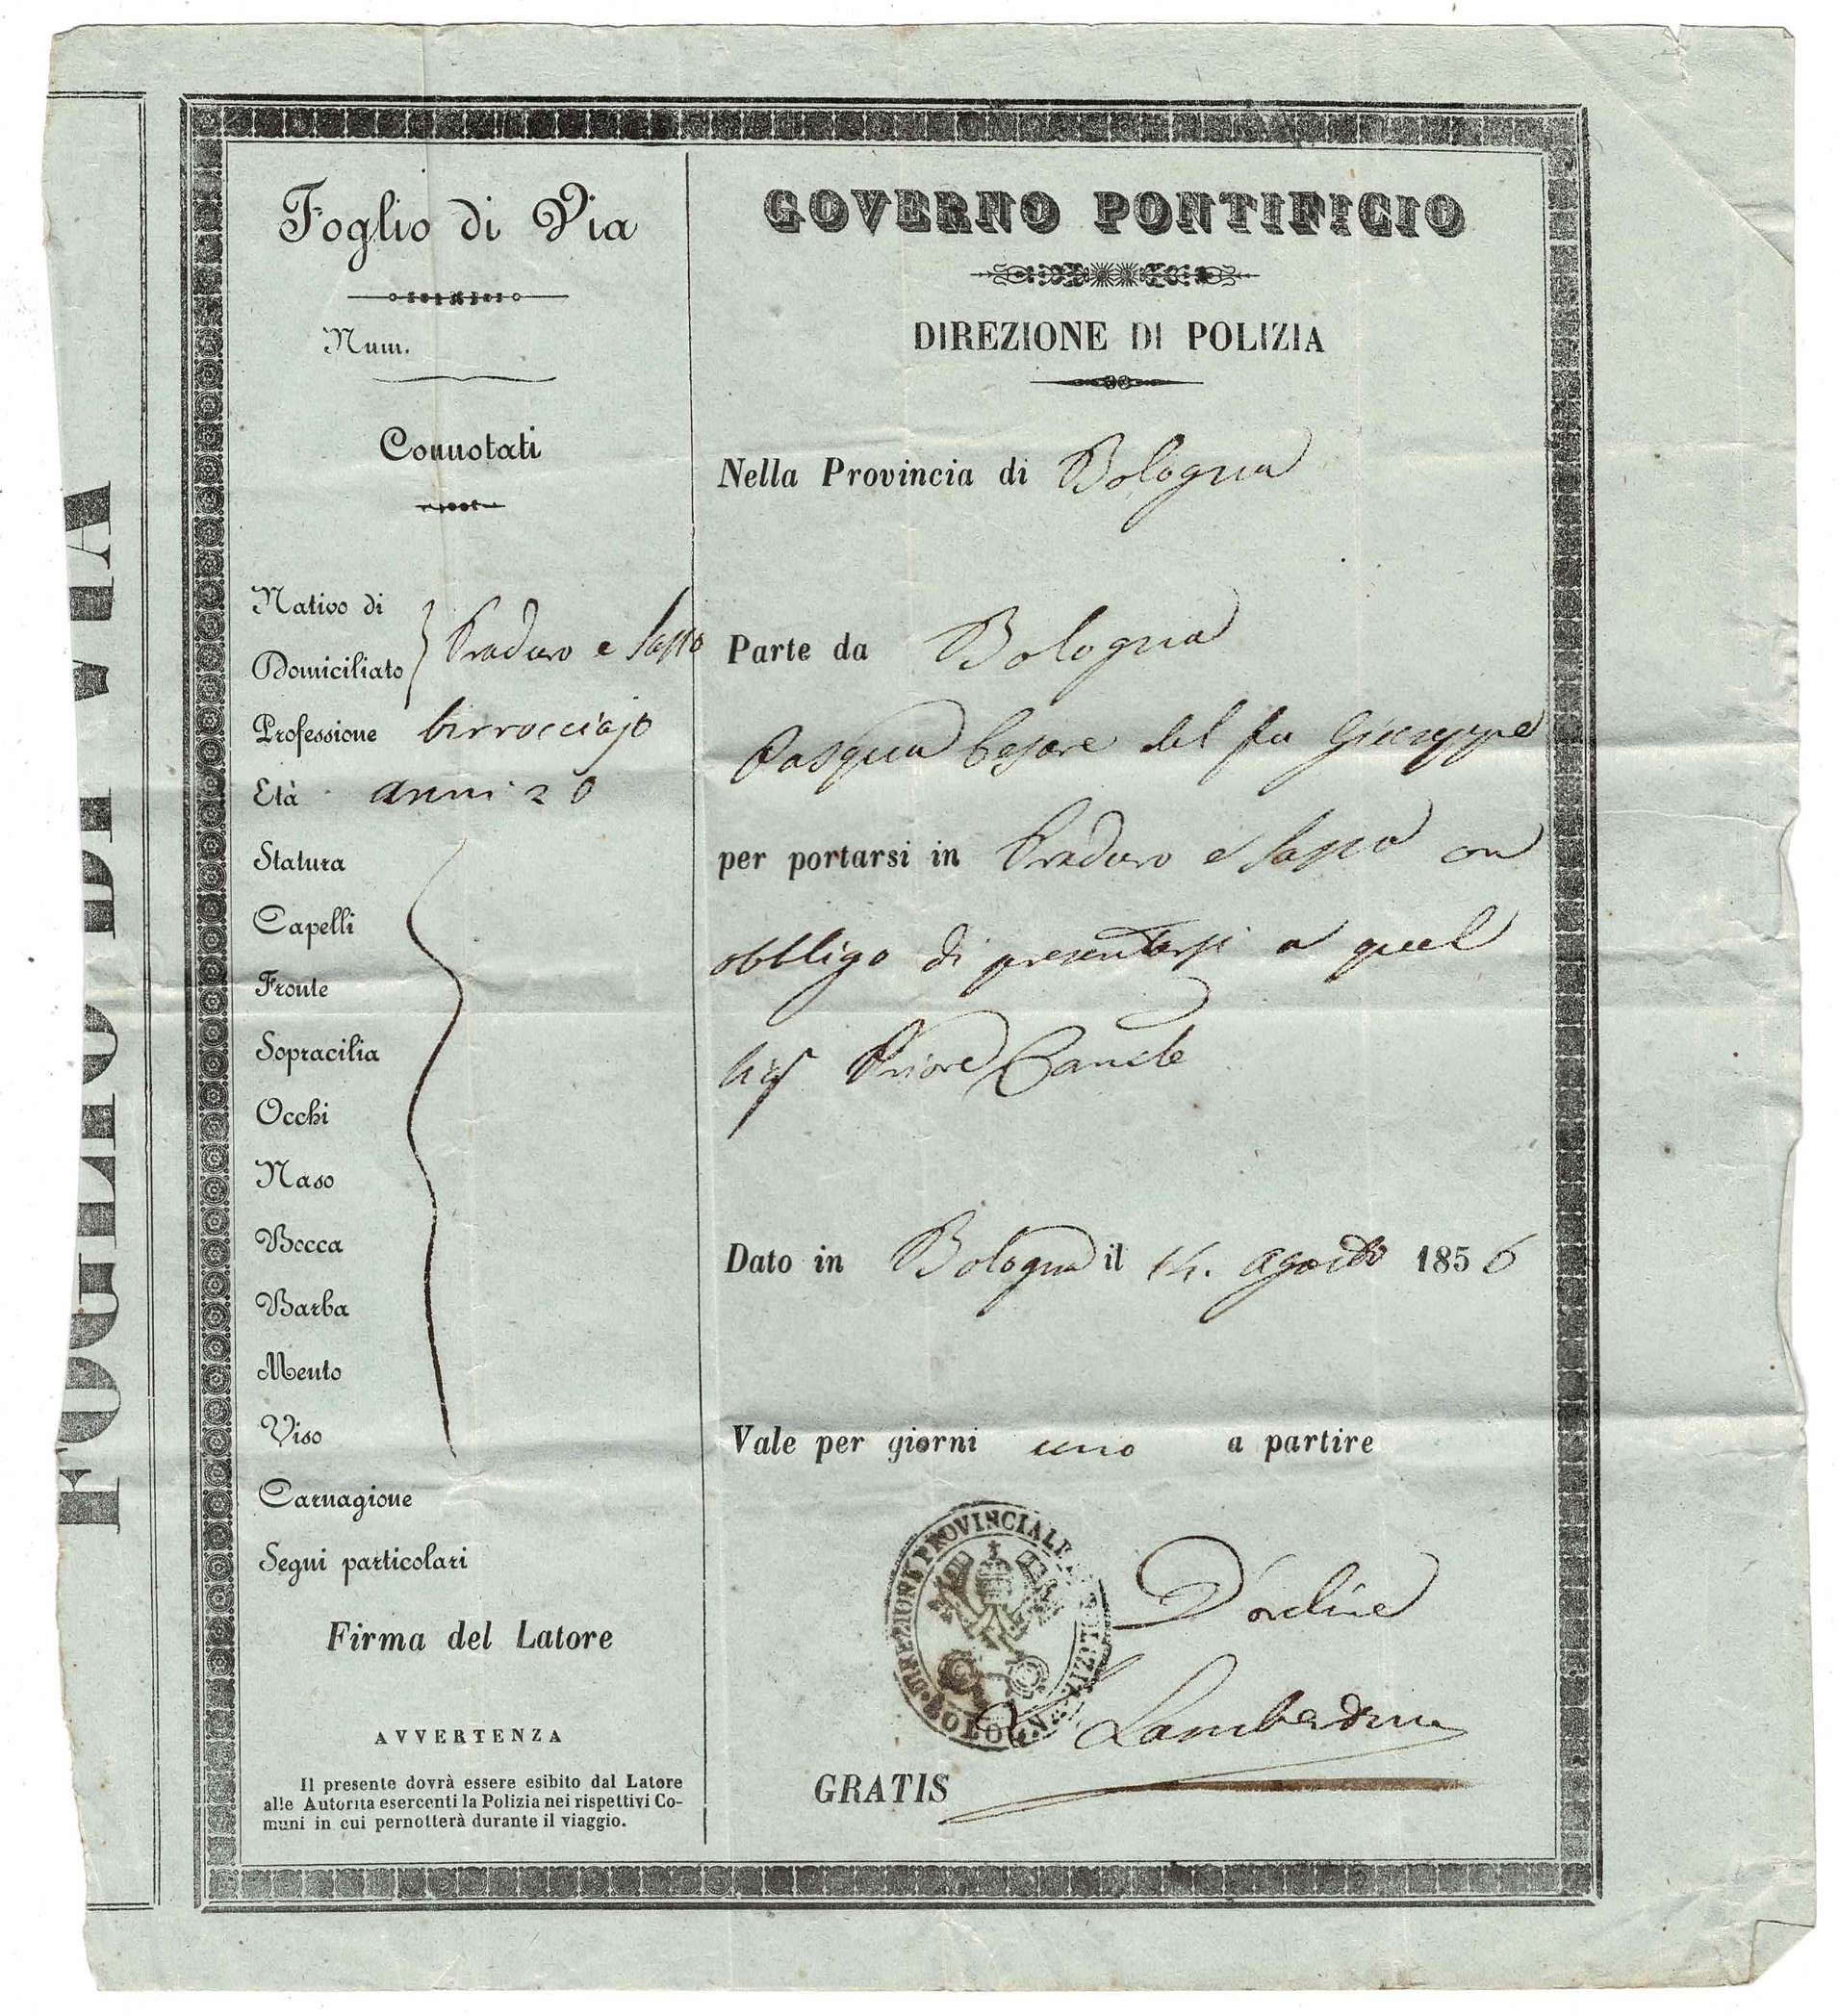 FOGLIO DI VIA
Foglio di Via
Num.
Connotati
Nativo di
Domiciliato } Praduro e Sasso
Professione birrocciajo
Età anni 20
Statura
Capelli
Fronte
Sopracilia
Occhi
Naso
Bocca
Barba
Mento
Viso
Carnagione
Segni particolari
Firma del Latore
AVVERTENZA
Il presente dovrà essere esibito dal Latore
alle Autorità esercenti la Polizia nei rispettivi Co-
muni in cui pernotterà durante il viaggio.
GOVERNO PONTIFICIO
DIREZIONE DI POLIZIA
Nella Provincia di Bologna
Parte da Bologna
Pasqua Cesare del fu Giuseppe
per portarsi in Praduro e Sasso con
obbligo di presentarsi a quel
Sig Priore
Dato in Bologna il 14. agosto 1856
Vale per giorni uno a partire
DIREZIONE PROVINCIALE DI POLIZIA
BOLOGNA
D'ordine
Lambertini
GRATIS